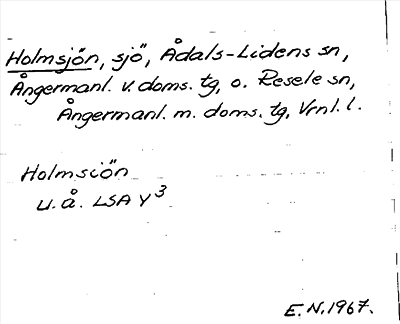 Holmsjön, sjö, Ådals-Lidens sn,
Ångermanl. v. doms. tg, o. Resele sn,
Ångermanl. m. doms. tg, Vrnl. l.
Holmsiön
u. å. LSA Y3
E.N. 1967.